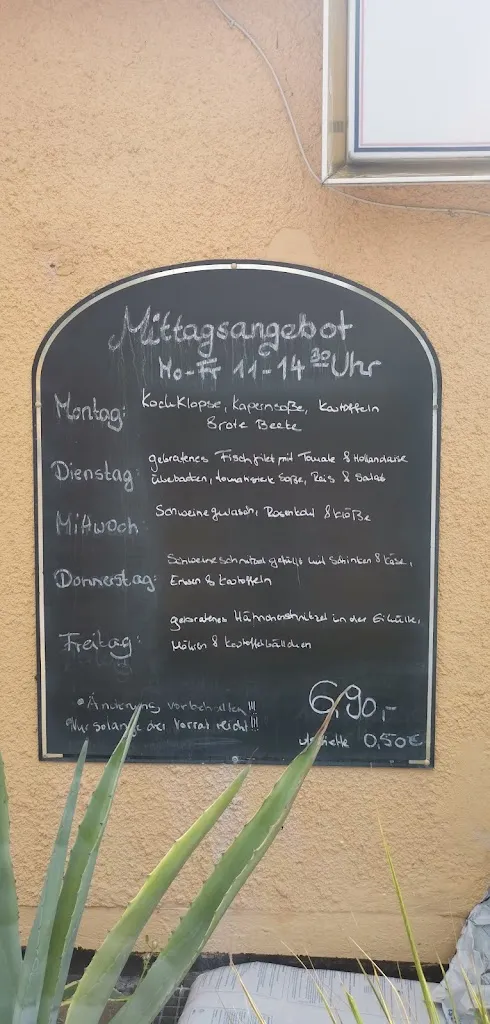 Mittagsangebot
Mo-Fr 11-14 30 Uhr
Montag: Kochklopse, Kapernsoße, Kartoffeln
& rote Beete
Dienstag: gebratenes Fischfilet mit Tomate & Hollandaise
überbacken, tomatisierte Soße, Reis & Salat
Mittwoch: Schweinegulasch, Rosenkohl & Klöße
Donnerstag: Schweineschnitzel gefüllt mit Schinken & Käse,
Erbsen & Kartoffeln
Freitag: gebratenes Hähnchenschnitzel in der Eihülle,
Möhren & Kartoffelbällchen
• Änderung vorbehalten!!!
• Nur solange der Vorrat reicht!!!
6,90,-
0,50€